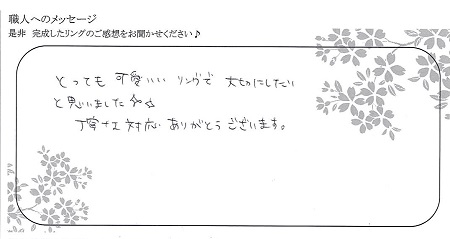 職人へのメッセージ
是非 完成したリングのご感想をお聞かせください♪
とっても 可愛いい リングで 大切にしたい
と思いました☆☆
丁寧な対応 ありがとうございます。